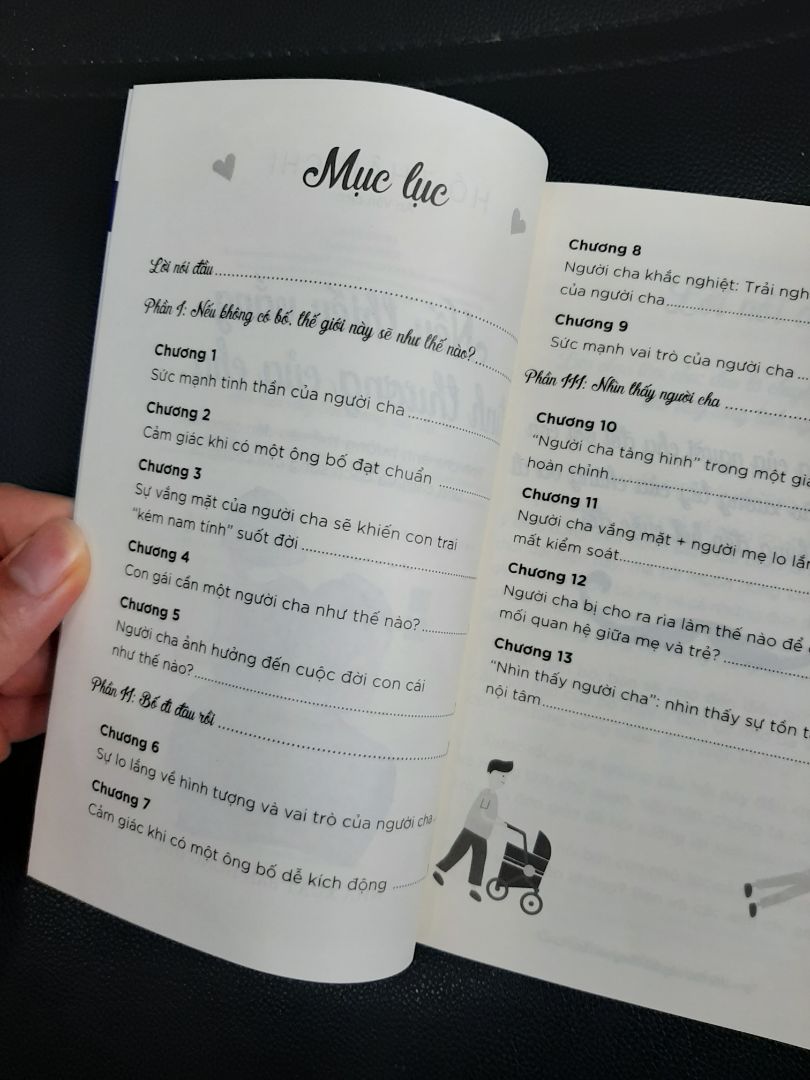 Mục lục
Lời nói đầu
Phần I: Nếu không có bố, thế giới này sẽ như thế nào?
Chương 1
Sức mạnh tinh thần của người cha
Chương 2
Cảm giác khi có một ông bố đạt chuẩn
Chương 3
Sự vắng mặt của người cha sẽ khiến con trai
“kém nam tính” suốt đời
Chương 4
Con gái cần một người cha như thế nào?
Chương 5
Người cha ảnh hưởng đến cuộc đời con cái
như thế nào?
Phần II: Bố đi đâu rồi
Chương 6
Sự lo lắng về hình tượng và vai trò của người cha
Chương 7
Cảm giác khi có một ông bố dễ kích động
Chương 8
Người cha khắc nghiệt: Trải
của người cha
Chương 9
Sức mạnh vai trò của người cha
Phần III: Nhìn thấy người cha
Chương 10
“Người cha tàng hình” trong một
hoàn chỉnh
Chương 11
Người cha vắng mặt + người mẹ lo
mất kiểm soát
Chương 12
Người cha bị cho ra rìa làm thế nào để
mối quan hệ giữa mẹ và trẻ?
Chương 13
“Nhìn thấy người cha”: nhìn thấy sự tồn
nội tâm